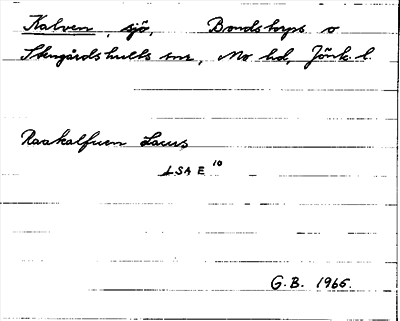 Kalven, sjö, Bondstorps o
Stengårdshults snr, Mo hd, Jönk. l.
Raakalfuen Lacus
LSA E 10
G.B. 1965.